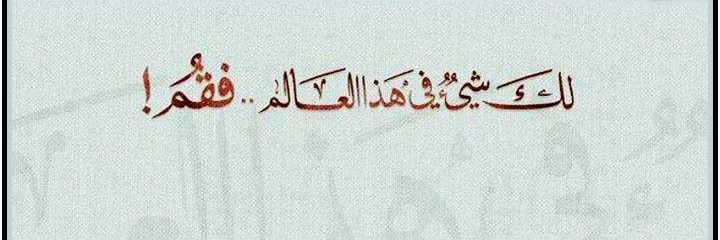 لكَ شيءٌ في هَذا العَالم .. فقُم !